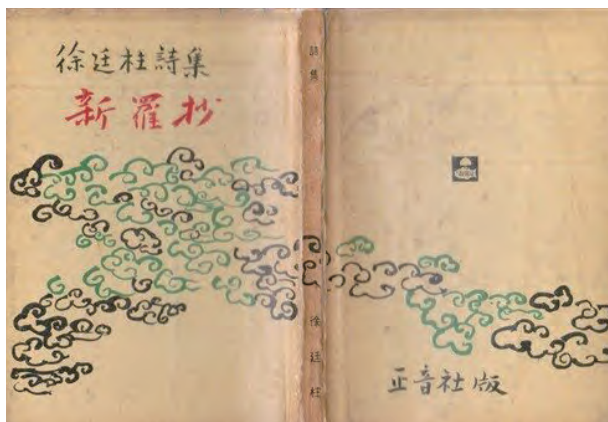 徐廷柱詩集
新羅抄
詩集
徐廷柱
正音社版